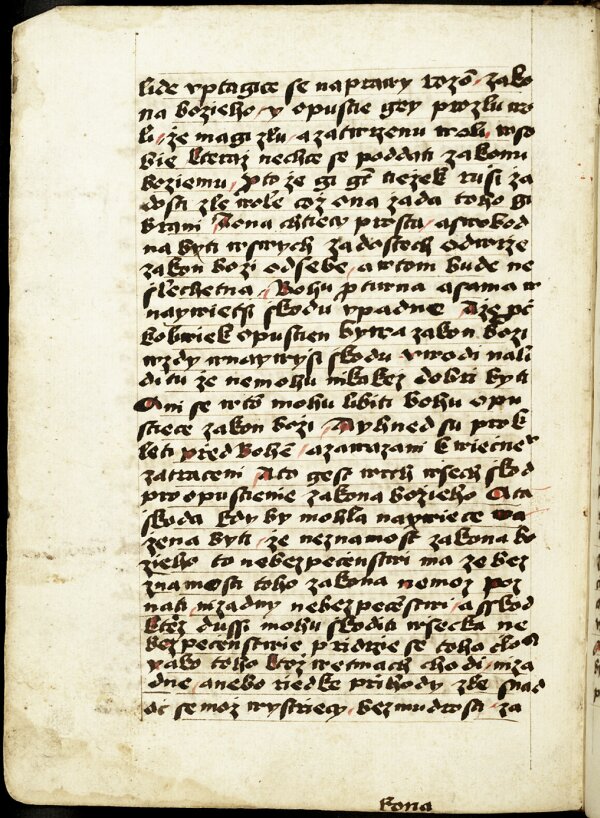 lide vptagice se naprawy rozō zako
na bozieho y opustie gey prozlu wo
li, že magi zlu azatwrzenu woli wso
bie kteraz nechce se poddati zakonu
boziemu, Pto že gi gt tiezek rusi za
dosti zle wole coz ona zada toho gi
brani Aona chtiecy prosta aswobod
na byti wswych zadostech odwrze
zakon bozi odsebe, awtom bude ne
slechetna Bohu ptiwna asama w
naywietsi skodu vpadne Aže pč
kolwiek opustien bywa zakon bozi
wzdy wnaywysi skodu vwodi nali
di tu že nemohu nikakez dobri byti
Ani se wtō mohu libiti bohu opu
stiece zakon bozi Ayhned su prok
leti pred Bohē azawazani kwiecne
zatraceni Ato gest wrch wsech skod
pro opustienie zakona bozieho Ata
skoda kdy by mohla naywiece wa
zena byti že neznamost zakona bo
zieho to nebezpecenstwi ma ze bez
znamosti toho zakona nemoz poz
nati mzadny nebezpecēstwi askod
ktez dussi mohu skoditi wsecka ne
bezpecenstwie pridrzie se toho clow
yako toho ktoz wetmach chodi mza
dne anebo riedke prihody zle snad
ot se moz wystriecy bezmudrosti za
kona